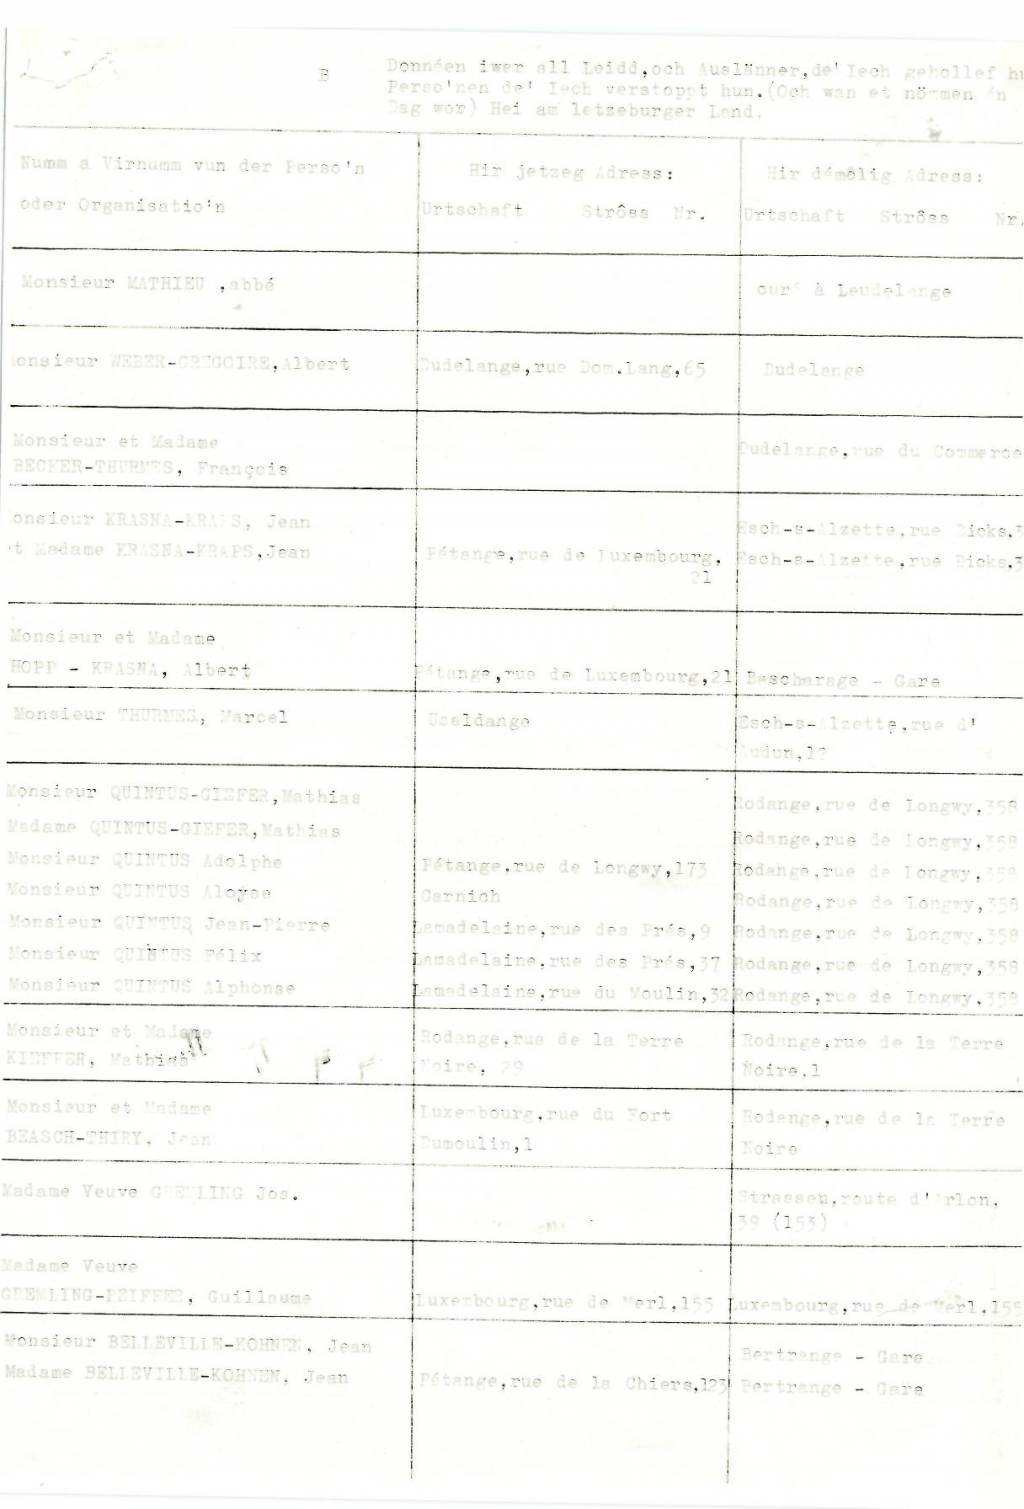 B
Donnéen iwer all Leidd,och Auslänner,de' Iech gehollef hu
Perso'nen de' Iech verstoppt hun.(Och wan et nömmen én
Dag wor) Hei am letzeburger Land.
Numm a Virnumm vun der Perso'n
oder Organisatio'n
Hir jetzeg Adress:
Urtschaft Strôss Nr.
Hir démôlig Adress:
Urtschaft Strôss Nr.
Monsieur MATHIEU ,abbé
curé à Leudelange
onsieur WEBER-GREGOIRE,Albert
Dudelange,rue Dom.Lang,65
Dudelange
Monsieur et Madame
BECKER-THURMES, François
Dudelange,rue du Commerce
onsieur KRASNA-KRAPS, Jean
Esch-s-Alzette,rue Dicks,3
t Madame KRASNA-KRAPS,Jean
Pétange,rue de Luxembourg,
21
Esch-s-Alzette,rue Dicks,3
Monsieur et Madame
HOPP - KRASNA, Albert
Pétange,rue de Luxembourg,21
Bascharage - Gare
Monsieur THURMES, Marcel
Useldange
Esch-s-Alzette,rue d'
Audun,12
Monsieur QUINTUS-GIEFER,Mathias
Rodange,rue de Longwy,358
Madame QUINTUS-GIEFER,Mathias
Rodange,rue de Longwy,358
Monsieur QUINTUS Adolphe
Pétange,rue de Longwy,173
Rodange,rue de Longwy,358
Monsieur QUINTUS Aloyse
Garnich
Rodange,rue de Longwy,358
Monsieur QUINTUS Jean-Pierre
Lamadelaine,rue des Prés,9
Rodange,rue de Longwy,358
Monsieur QUINTUS Félix
Lamadelaine,rue des Prés,37
Rodange,rue de Longwy,358
Monsieur QUINTUS Alphonse
Lamadelaine,rue du Moulin,32
Rodange,rue de Longwy,358
Monsieur et Madame
KIEFFER, Mathias
Rodange,rue de la Terre
Noire, 29
Rodange,rue de la Terre
Noire,1
Monsieur et Madame
BEASCH-THIRY, Jean
Luxembourg,rue du Fort
Dumoulin,1
Rodange,rue de la Terre
Noire
Madame Veuve GREMLING Jos.
Strassen,route d'Arlon,
39 (153)
Madame Veuve
GREMLING-PEIFFER, Guillaume
Luxembourg,rue de Merl,155
Luxembourg,rue de Merl,155
Monsieur BELLEVILLE-KOHNEN, Jean
Bertrange - Gare
Madame BELLEVILLE-KOHNEN, Jean
Pétange,rue de la Chiers,123
Bertrange - Gare